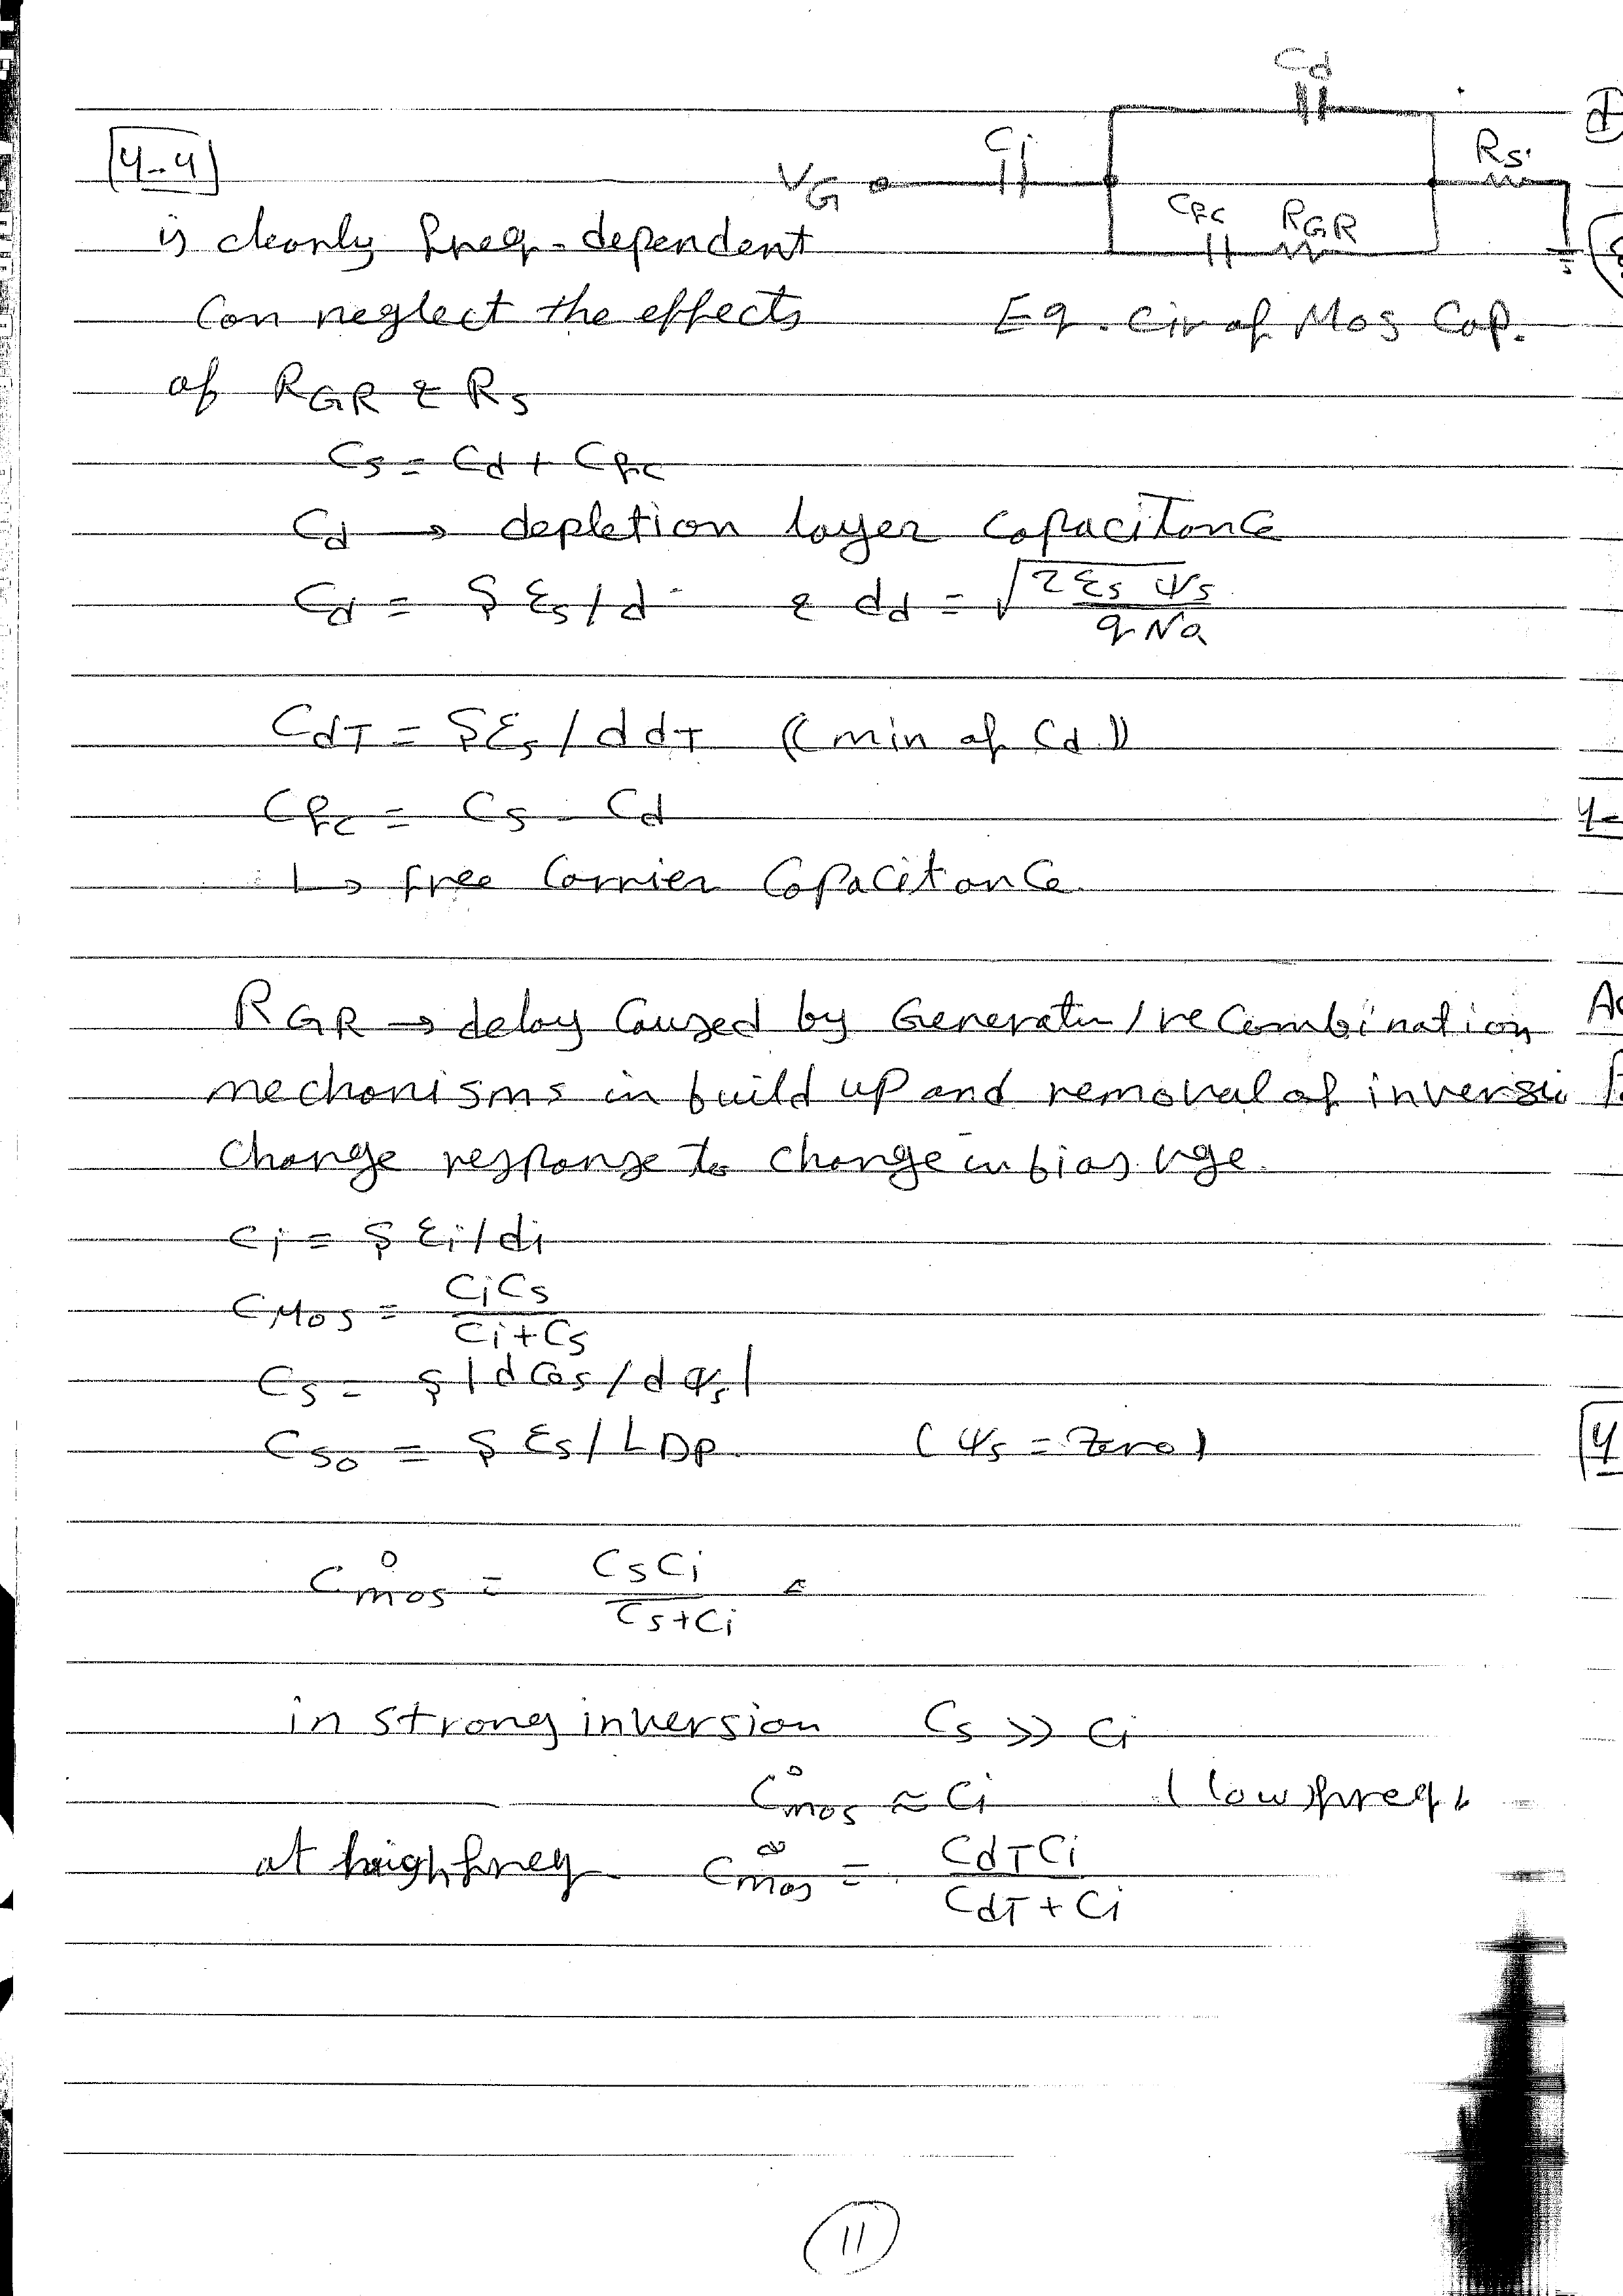 Cd
Ci
Rs
VG
Cfc RGR
4-4
is clearly freq-dependent
Eq. cir of Mos Cap.
Can neglect the effects
of RGR & Rs
Cs = Cd + Cfc
Cd → depletion layer Capacitance
Cd = S εs/d & dd = √(2 εs ψs / q Na)
CdT = S εs / ddT ((min of Cd))
Cfc = Cs - Cd
↳ free Carrier Capacitance
RGR → delay Caused by Generation/recombination
mechanisms in build up and removal of inversio
Charge response to change in bias vge.
Ci = S εi/di
CMos = CiCs / Ci+Cs
Cs = S |dQs/dψs|
Cso = S εs/LDp (ψs = Zero)
C°mos = CsCi / Cs+Ci
in strong inversion Cs >> Ci
C°mos ≈ Ci (low freq)
at high freq C∞mos = CdTCi / CdT + Ci
11